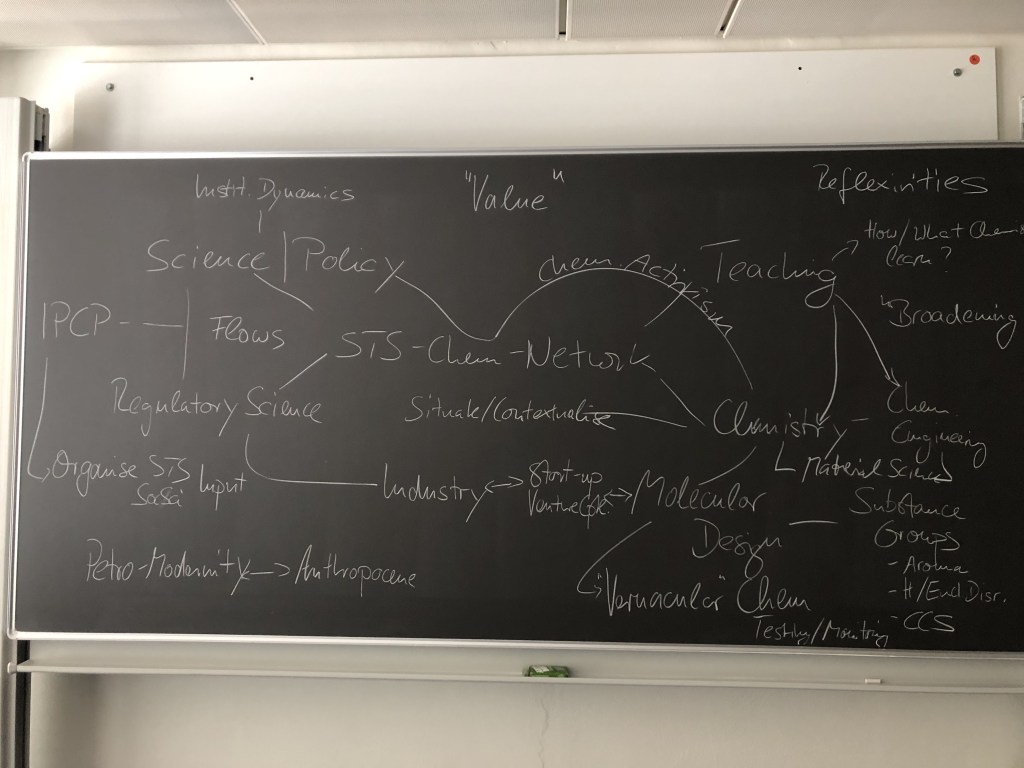 Instit. Dynamics
"Value"
Reflexivities
Science | Policy
Chem. Activism
Teaching
How/What Chem
learn?
Broadening
IPCP
Flows
STS-Chem-Network
Regulatory Science
Situate/Contextualise
Chemistry
Chem.
Engineering
Material Sciences
Organise STS
SoSci
Input
Industry
Start-up
Venture
Molecular
Design
Substance
Groups
- Aroma
- H/End Disr.
- CCS
Petro-Modernity
Anthropocene
"Vernacular" Chem
Testing/Monitoring